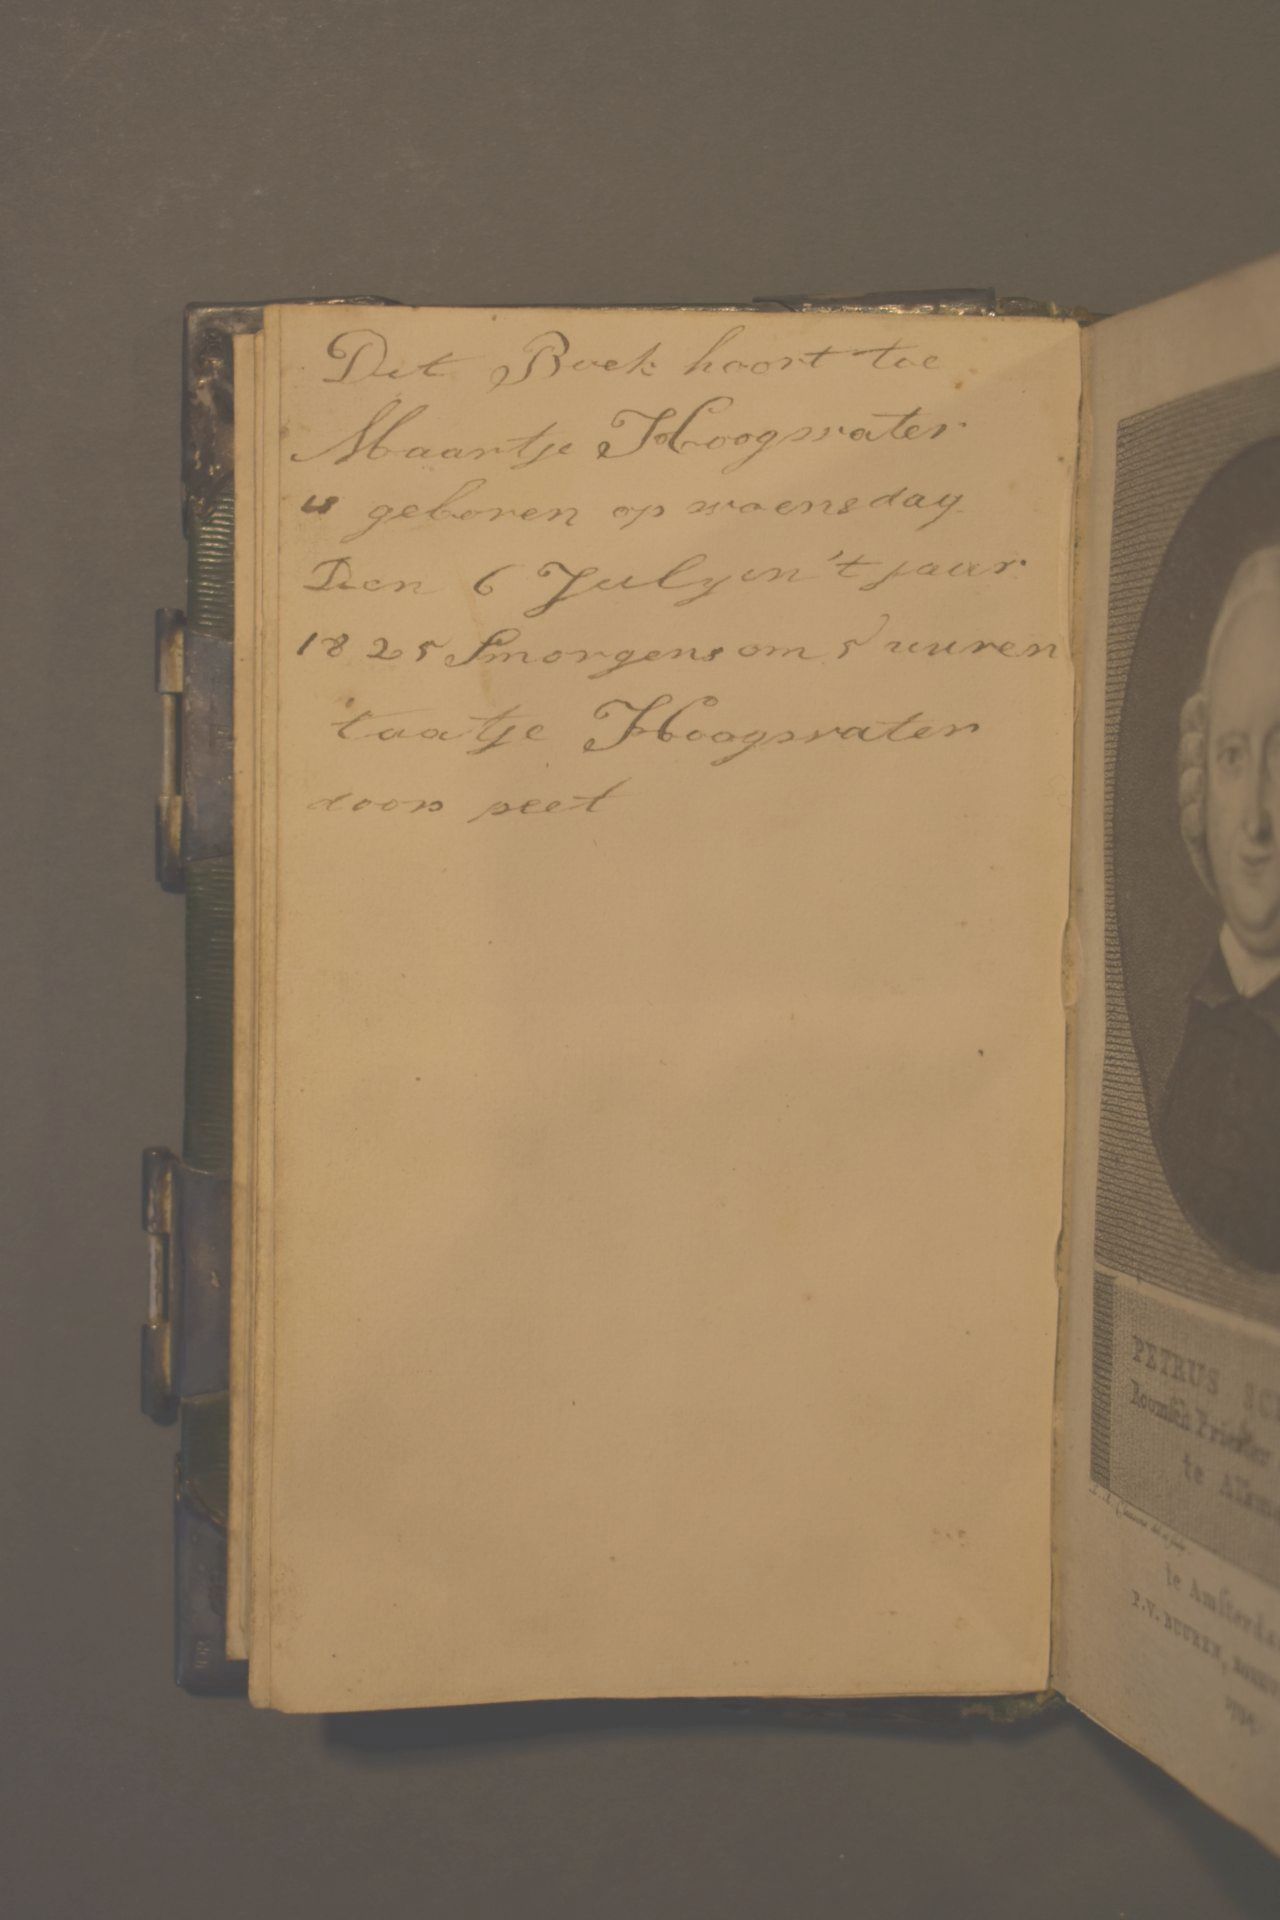 Dit Boek hoort toe
Maartje Hoogwater
is geboren op woensdag
Den 6 July in 't jaar
1825 Smorgens om 5 uuren
taatje Hoogwater
doop peet
PETRUS SCH
Roomsch Priester
te Alkm
te Amsterda
P. V. BUUREN, BOEKV